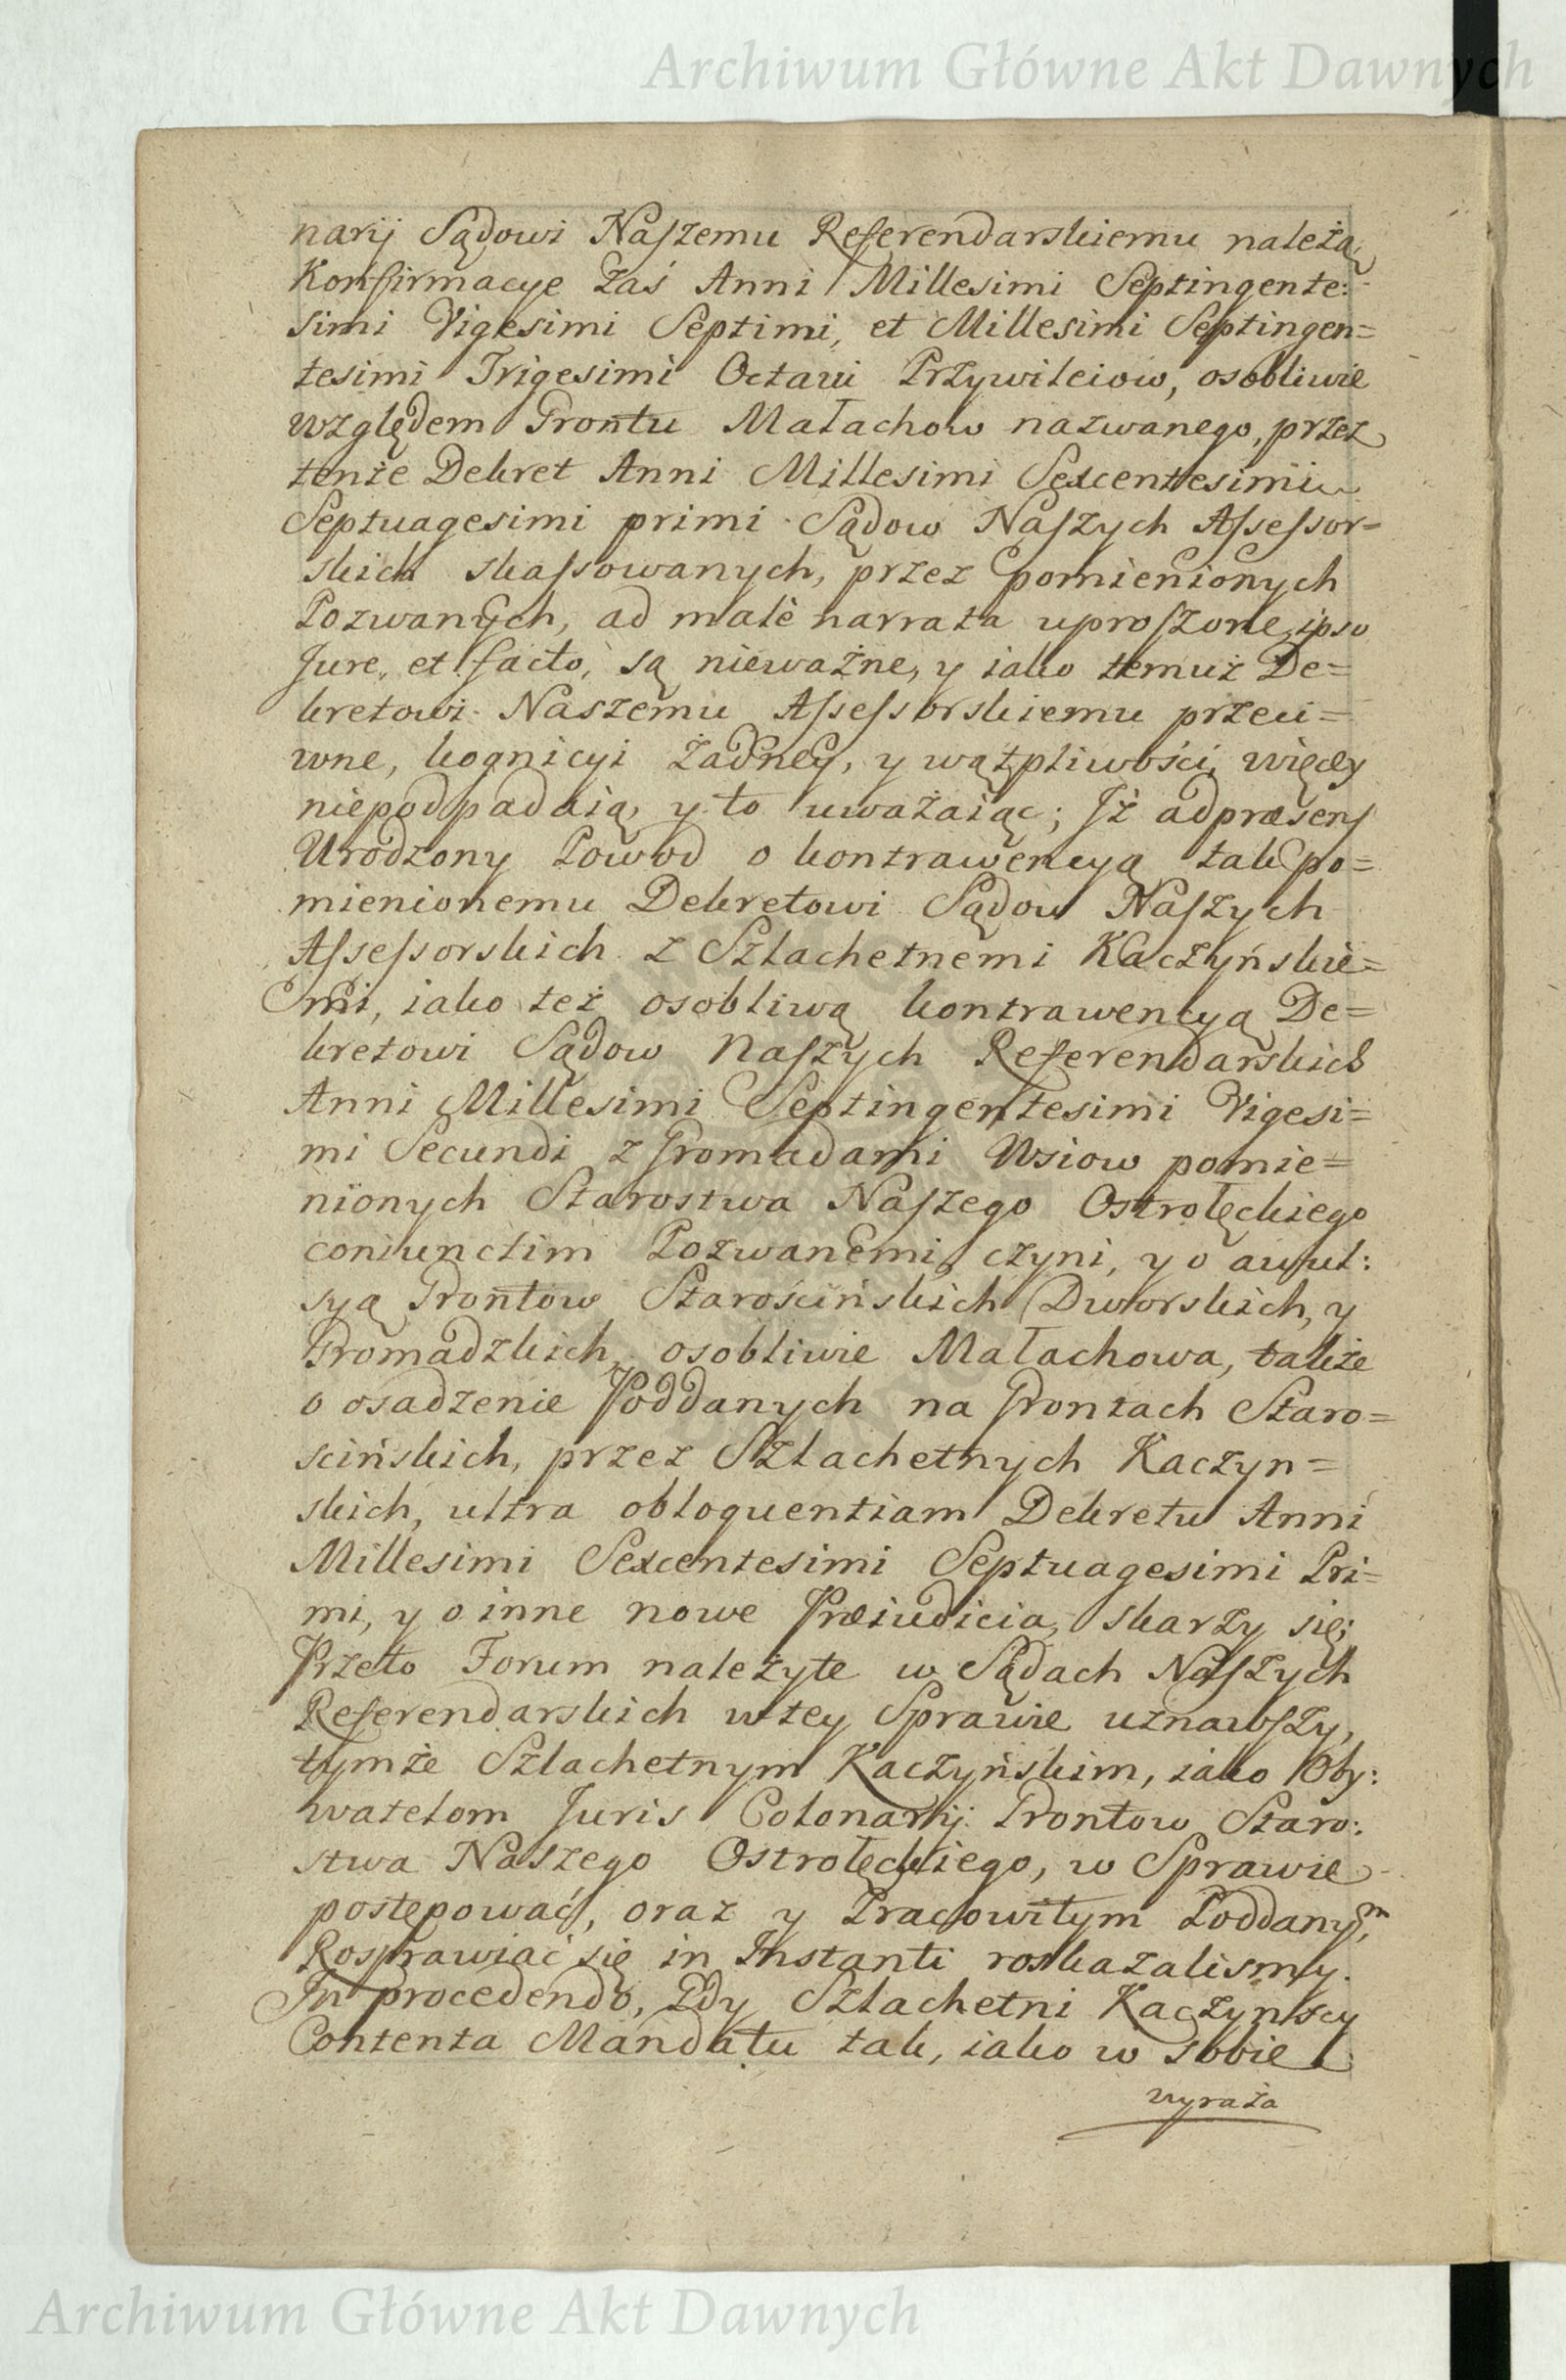 Archiwum Główne Akt Dawnych
narij Sądowi Naszemu Referendarskiemu należą
Konfirmacye zaś Anni Millesimi Septingente:
simi Vigesimi Septimi, et Millesimi Septingen=
tesimi Trigesimi Octavi Przywileiow, osobliwie
względem Grontu Małachow nazwanego, przez
tenże Dekret Anni Millesimi Sexcentesimi
Septuagesimi primi Sądow Naszych Assessor=
skich skassowanych, przez pomienionych
Pozwanych, ad malè narrata uproszone, ipso
Jure, et facto, są nieważne, y iako temuż De=
kretowi Naszemu Assessorskiemu przeci=
wne, kognicyi żadney, y wątpliwości więcey
niepodpadaią, y to uważaiąc; Iż adpræsens
Urodzony Powod o kontrawencyą tak po=
mienionemu Dekretowi Sądow Naszych
Assessorskich z Szlachetnemi Kaczyńskie=
mi, iako też osobliwą kontrawencyą De=
kretowi Sądow Naszych Referendarskich
Anni Millesimi Septingentesimi Vigesi=
mi Secundi z Gromadami Wsiow pomie=
nionych Starostwa Naszego Ostrołęckiego
coniunctim Pozwanemi, czyni, y o awul:
syą Grontow Starościńskich Dworskich, y
Gromadzkich, osobliwie Małachowa, także
o osadzenie Poddanych na Grontach Staro=
scińskich, przez Szlachetnych Kaczyn=
skich, ultra obloquentiam Dekretu Anni
Millesimi Sexcentesimi Septuagesimi Pri=
mi, y o inne nowe Præiudicia, skarzy się;
Przeto Forum należyte w Sądach Naszych
Referendarskich w tey Sprawie uznawszy,
tymże Szlachetnym Kaczyńskim, iako Oby:
watelom Juris Colonarij Grontow Staro:
stwa Naszego Ostrołęckiego, w Sprawie
postępować, oraz y Pracowitym Poddanym,
Rosprawiać się in Instanti roskazalismy.
In procedendo, Gdy Szlachetni Kaczynscy
Contenta Mandatu tak, iako w sobie
wyraża
Archiwum Główne Akt Dawnych